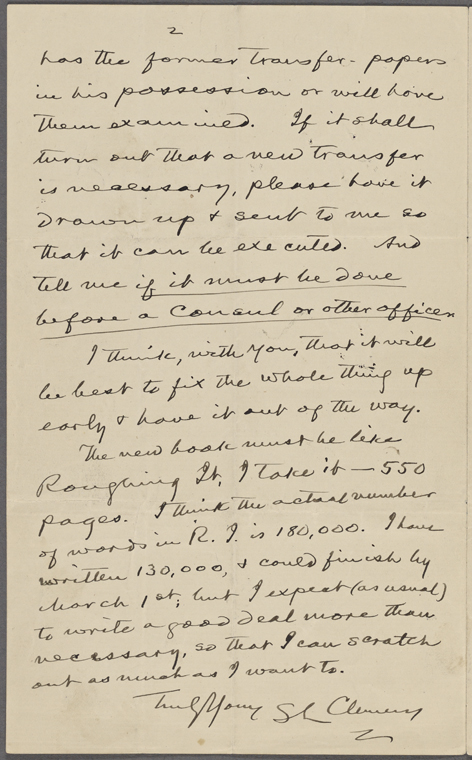 2
has the former transfer-papers
in his possession or will have
them examined. If it shall
turn out that a new transfer
is necessary, please have it
drawn up & sent to me so
that it can be executed. And
tell me if it must be done
before a Consul or other officer.
I think, with you, that it will
be best to fix the whole thing up
early & have it out of the way.
The new book must be like
Roughing It, I take it — 550
pages. I think the actual number
of words in R. I. is 180,000. I have
written 130,000, & could finish by
March 1st; but I expect (as usual)
to write a good deal more than
necessary, so that I can scratch
out as much as I want to.
Truly Yours S L Clemens